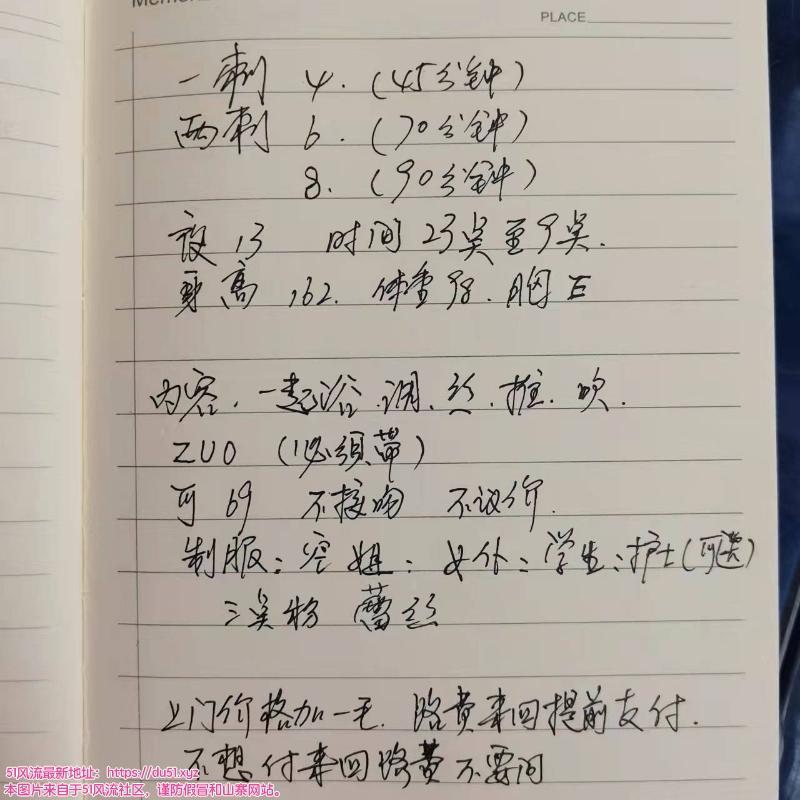 PLACE
一刺 4.（45分钟）
两刺 6.（70分钟）
8.（90分钟）
夜13 时间23点至9点.
身高162. 体重98. 胸E
内容. 一起浴.调.丝.推.吹.
ZUO（必须带）
可69 不接吻 不议价.
制服：空姐：女仆：学生：护士（可选）
三点粉 蕾丝
上门价格加一毛. 路费来回提前支付.
不想付来回路费不要问
51风流最新地址：https://du51.xyz
本图片来自于51风流社区，谨防假冒和山寨网站。